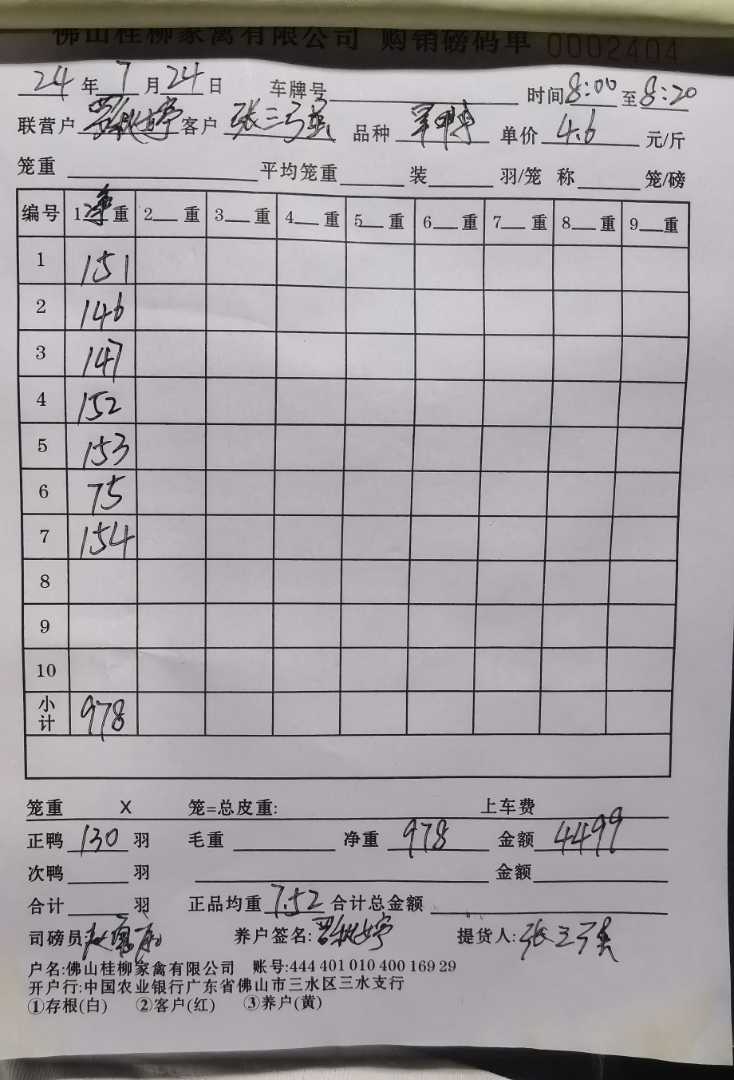 佛山桂柳家禽有限公司 购销磅码单 0002404
24 年 7 月 24 日 车牌号 时间 8:00 至 8:20
联营户 客户 张三强 品种 单价 4.6 元/斤
笼重 平均笼重 装 羽/笼 称 笼/磅
编号 1 净 重 2 重 3 重 4 重 5 重 6 重 7 重 8 重 9 重
1 151
2 146
3 147
4 152
5 153
6 75
7 154
8
9
10
小计 978
笼重 X 笼=总皮重: 上车费
正鸭 130 羽 毛重 净重 978 金额 4499
次鸭 羽 金额
合计 羽 正品均重 7.52 合计总金额
司磅员 养户签名: 提货人: 张三强
户名:佛山桂柳家禽有限公司 账号:444 401 010 400 169 29
开户行:中国农业银行广东省佛山市三水区三水支行
①存根(白) ②客户(红) ③养户(黄)